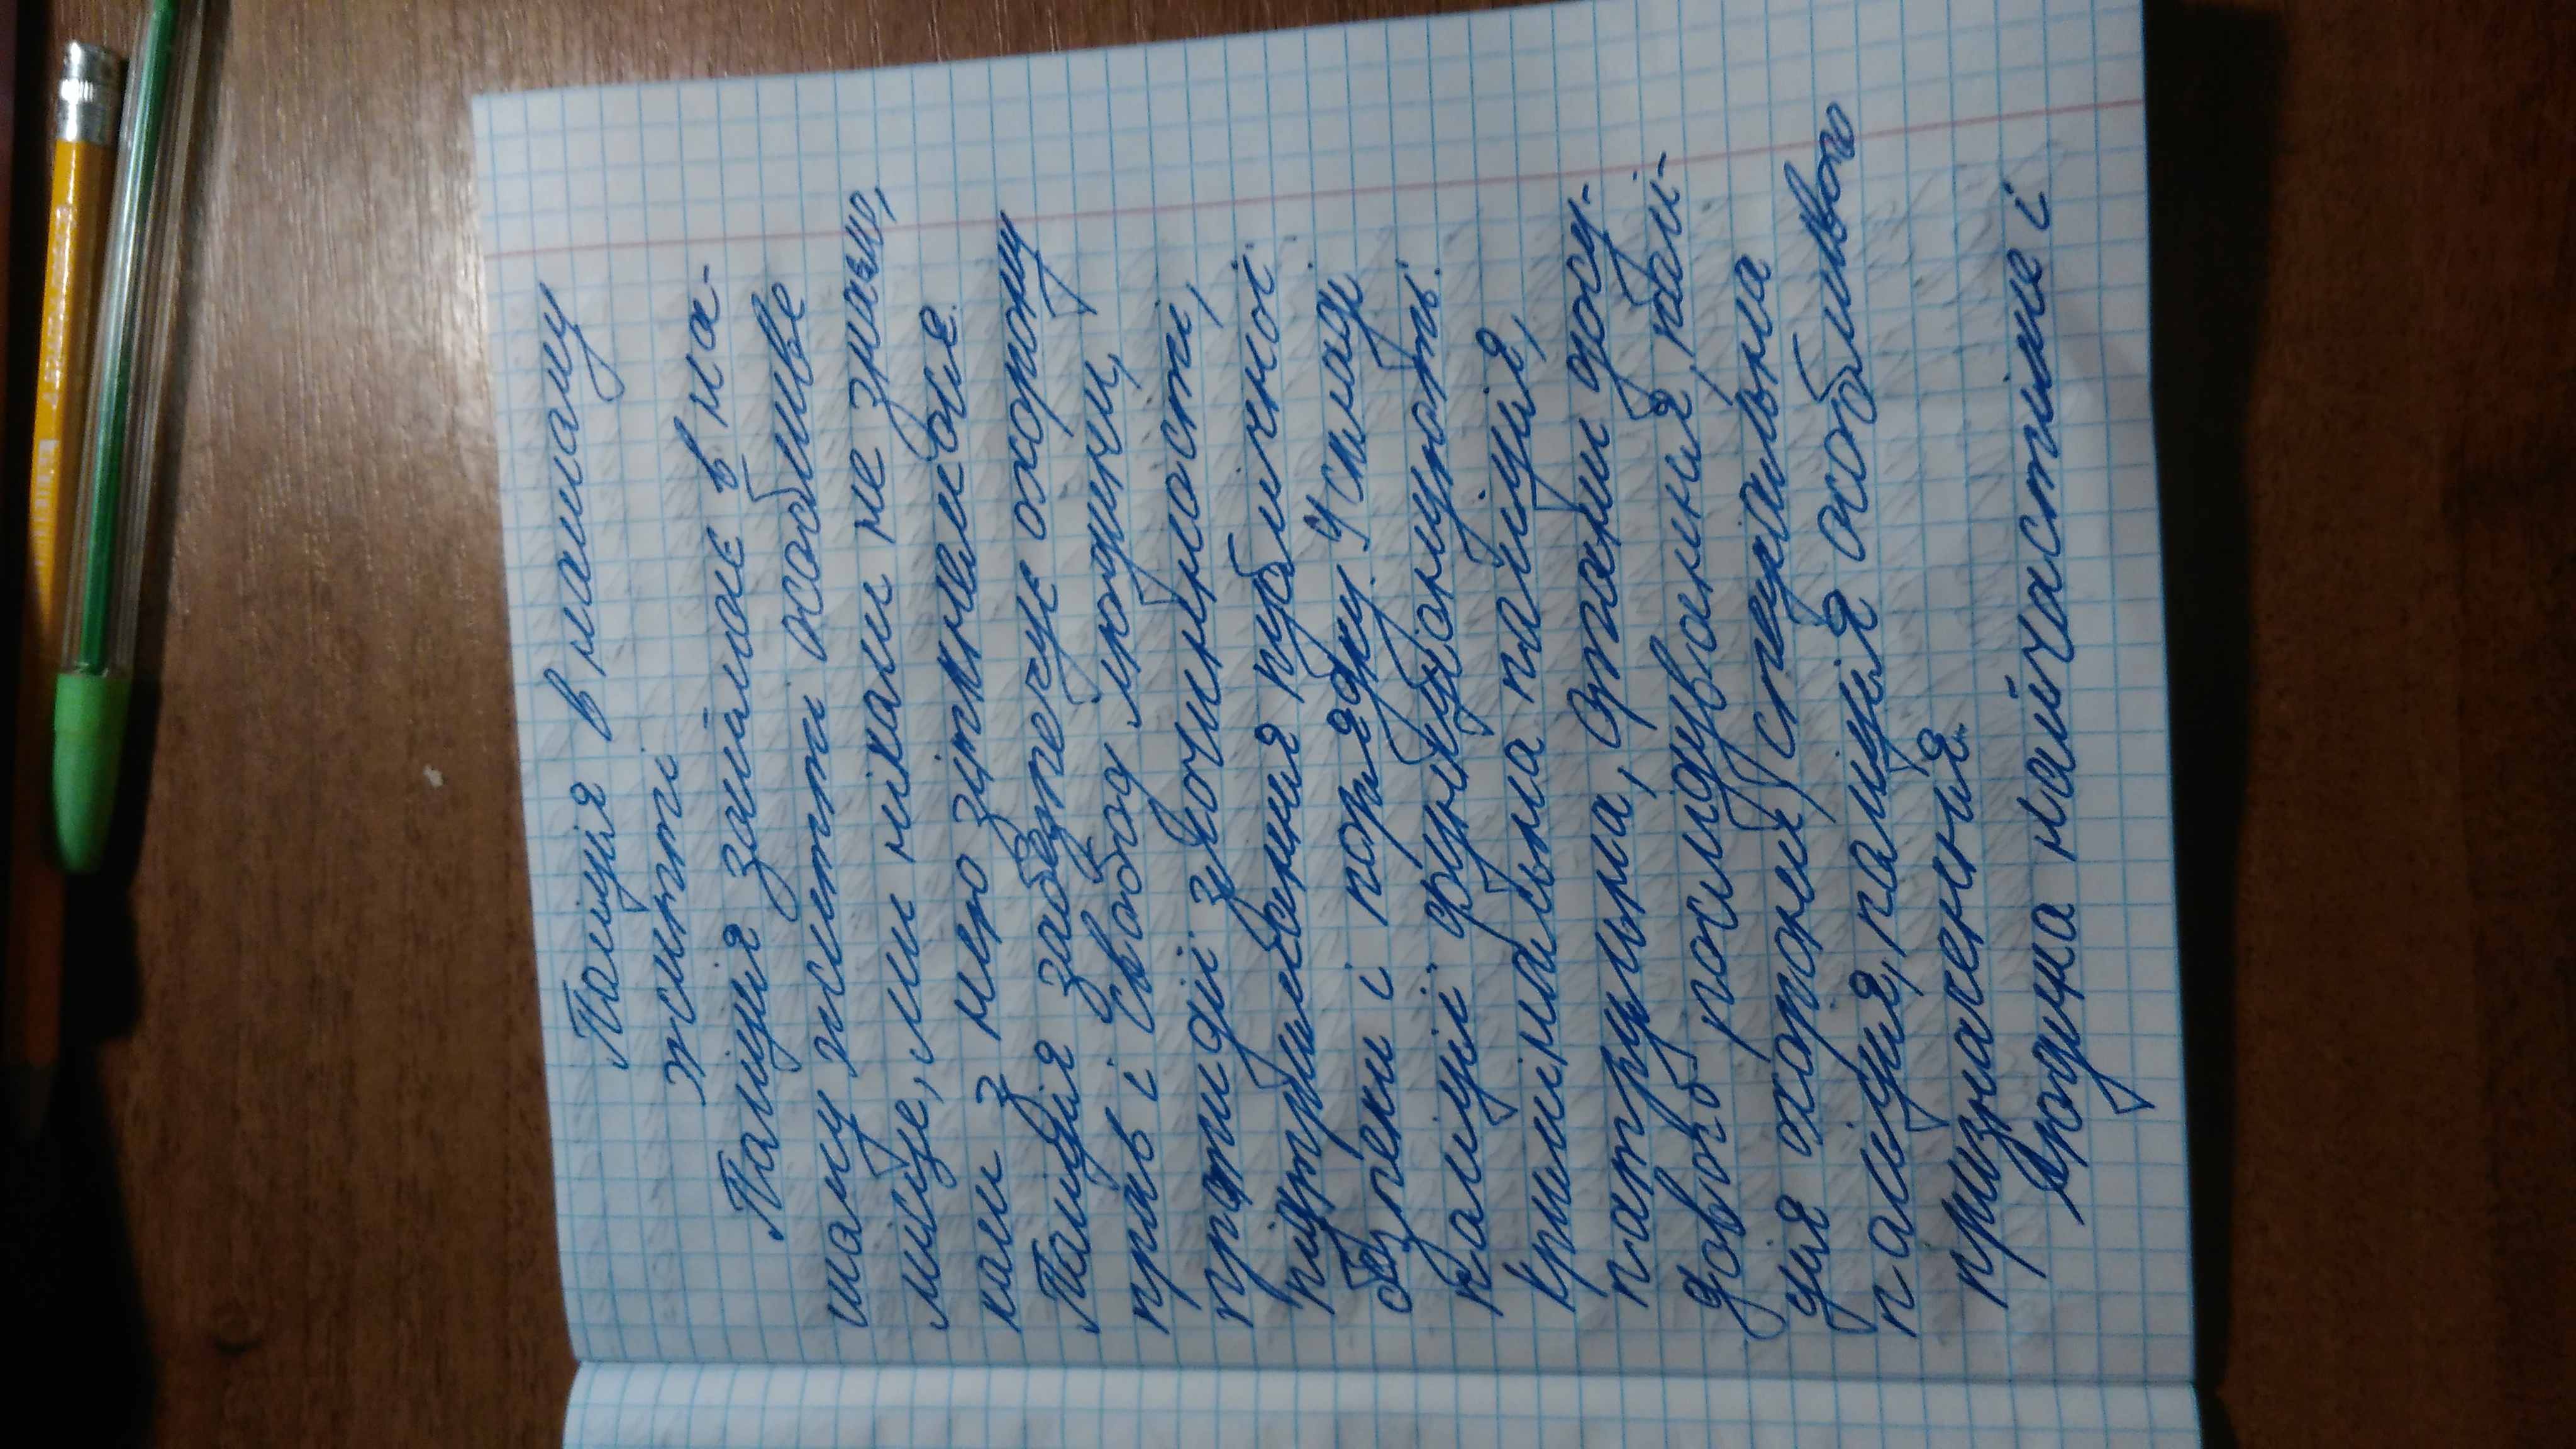 Поліція в нашому
житті
Поліція займає в на-
шому житті особливе
місце, ми ніколи не знаємо,
коли з нею зіткнемося.
Поліція забезпечує охорону
прав і свобод людини,
протидії злочинності,
підтримання публічної
безпеки і порядку. У складі
поліції функціонують:
кримінальна поліція,
патрульна, органи досу-
дового розслідування, полі-
ція охорони, спеціальна
поліція, поліція особливого
призначення.
Люди найчастіше і